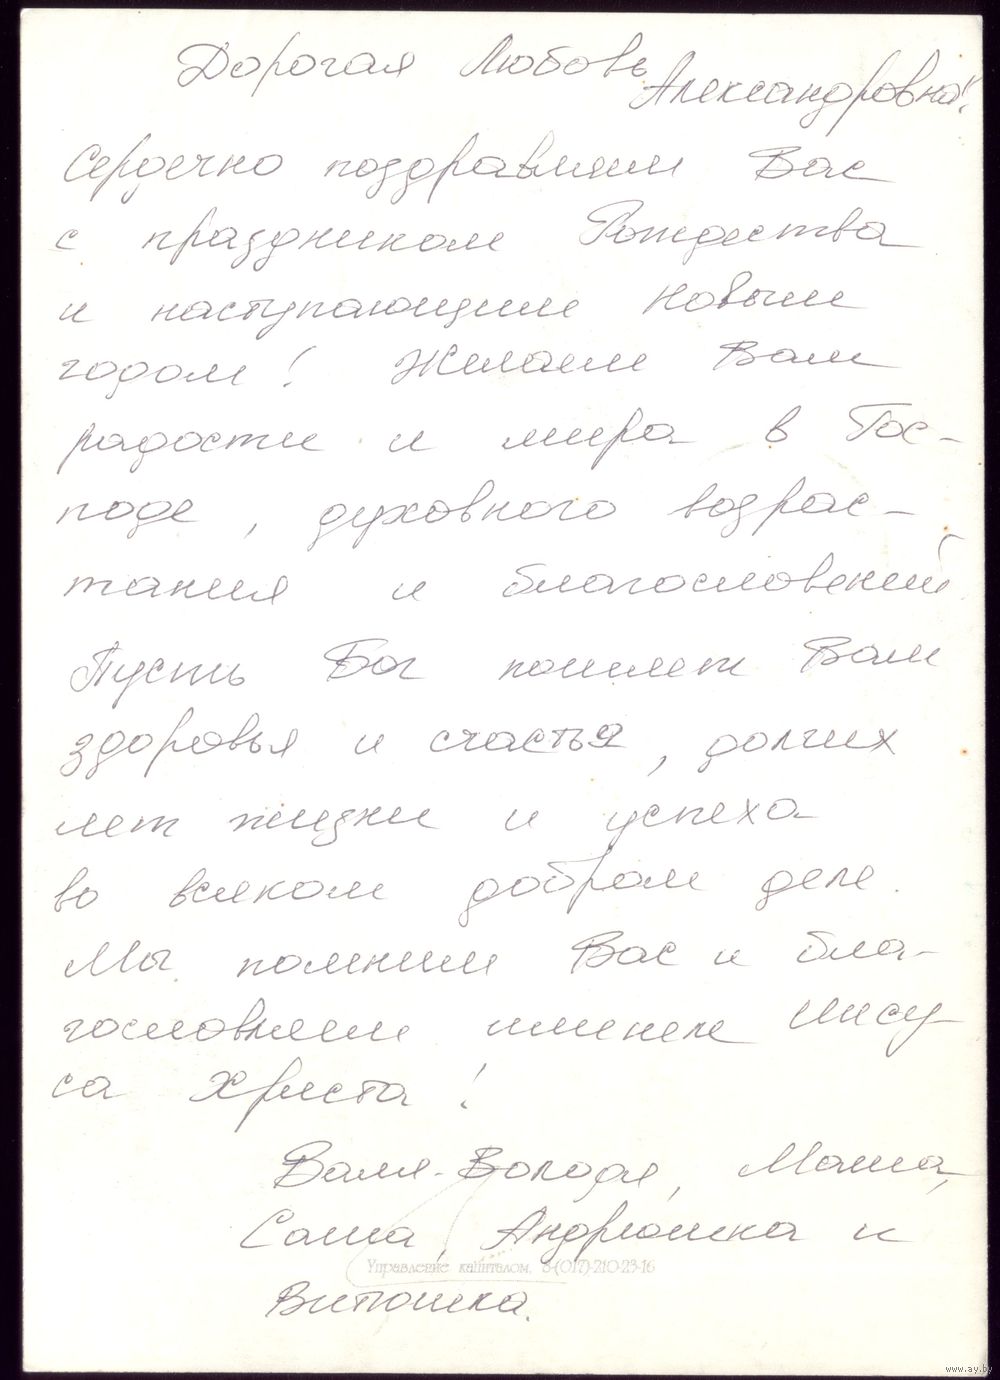 Дорогая Любовь
Александровна!
Сердечно поздравляем Вас
с праздником Рождества
и наступающим Новым
годом! Желаем Вам
радости и мира в Гос-
поде, духовного возрас-
тания и благословений
Пусть Бог пошлет Вам
здоровья и счастья, долгих
лет жизни и успеха
во всяком добром деле.
Мы помним Вас и бла-
гословляем именем Иису-
са Христа!
Валя-Володя, Маша,
Саша, Андрюшка и
Управление капиталом, 8-(017)-210-23-16
Витюшка.
www.ay.by